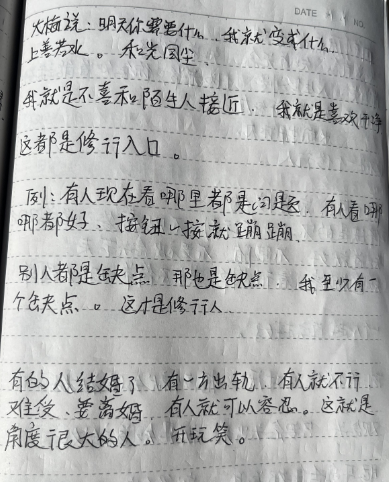 DATE NO
大梅说：明天你需要什么 我就变成什么
上善若水。和光同尘
我就是不喜和陌生人接近 我就是喜欢干净
这都是修行入口。
例：有人现在看哪里都是问题 有人看哪
哪都好、按钮一按就蹦蹦、
别人都是缺点 那也是缺点 我至少有一
个缺点。这才是修行人
有的人结婚了 有一方出轨 有人就不行
难受、要离婚 有人就可以容忍。这就是
角度很大的人。开玩笑。